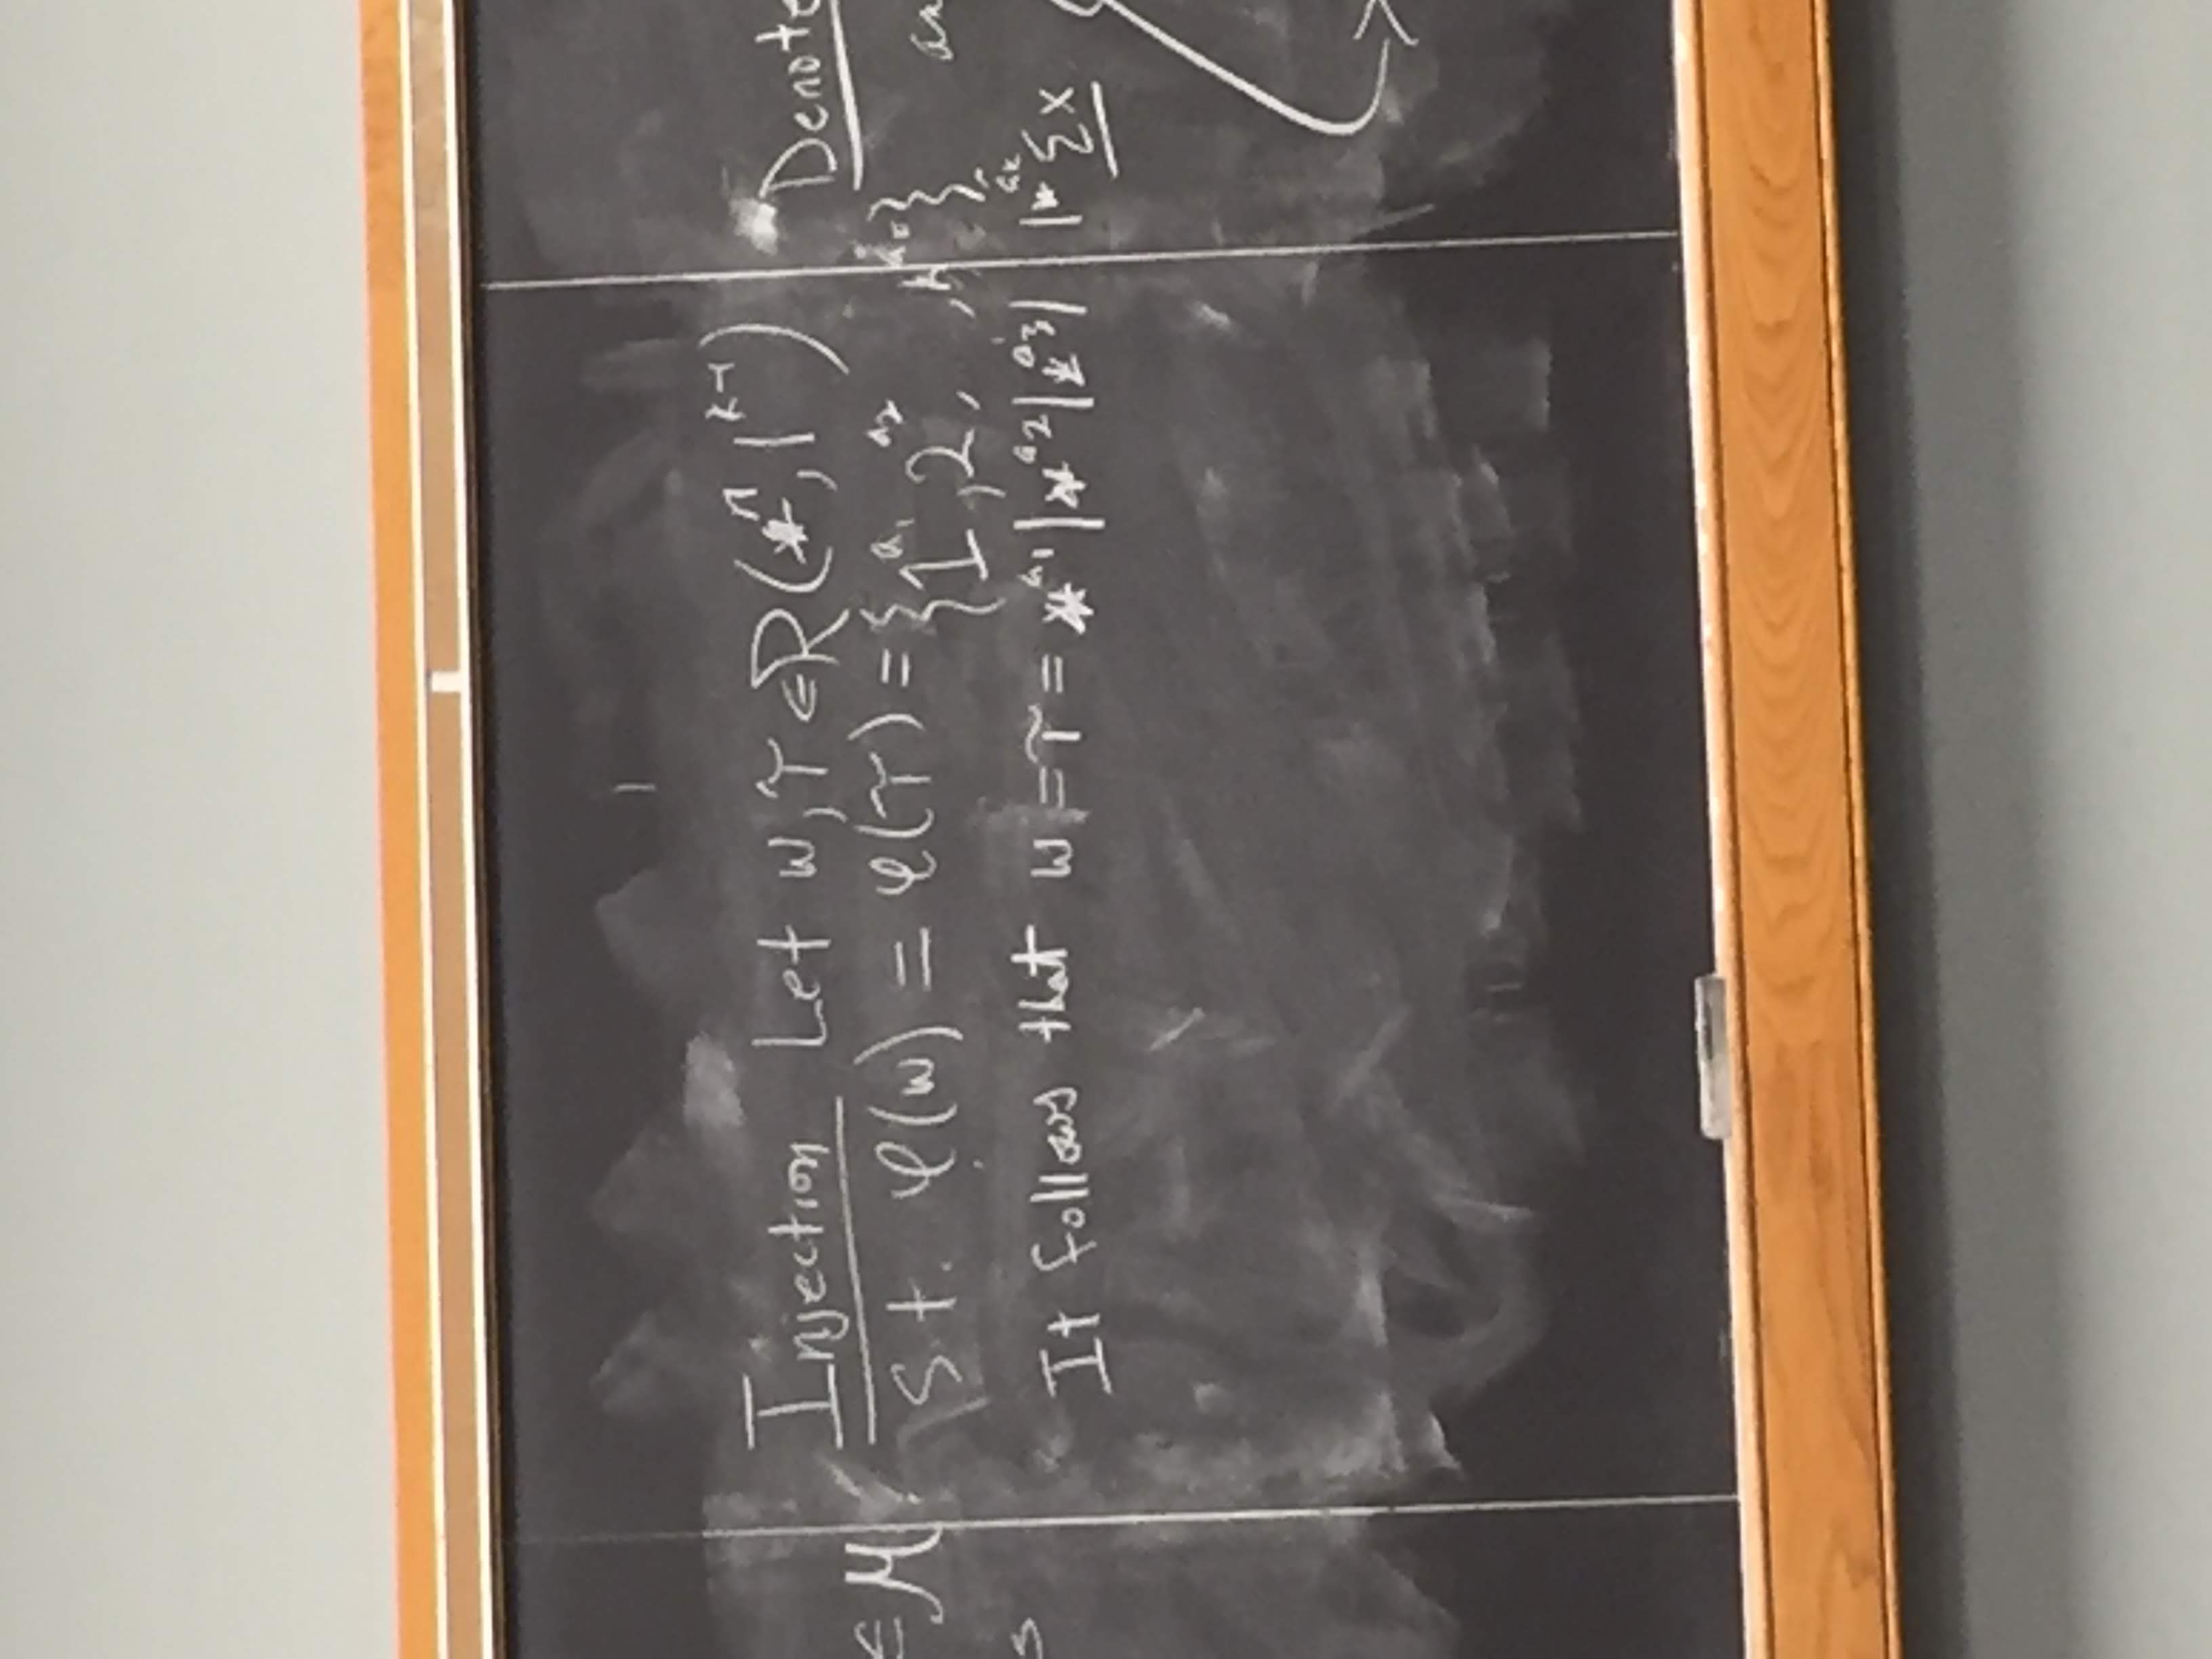 Injection Let w, τ ∈ R(*ⁿ, |ᵏ⁻¹)
∈ M
s.t. φ(w) = φ(τ) = {1^a₁, 2^a₂, , k^aₖ}
s
It follows that w = τ = *^a₁|*^a₂|*^a₃| |*^aₖ
Denote
Ex